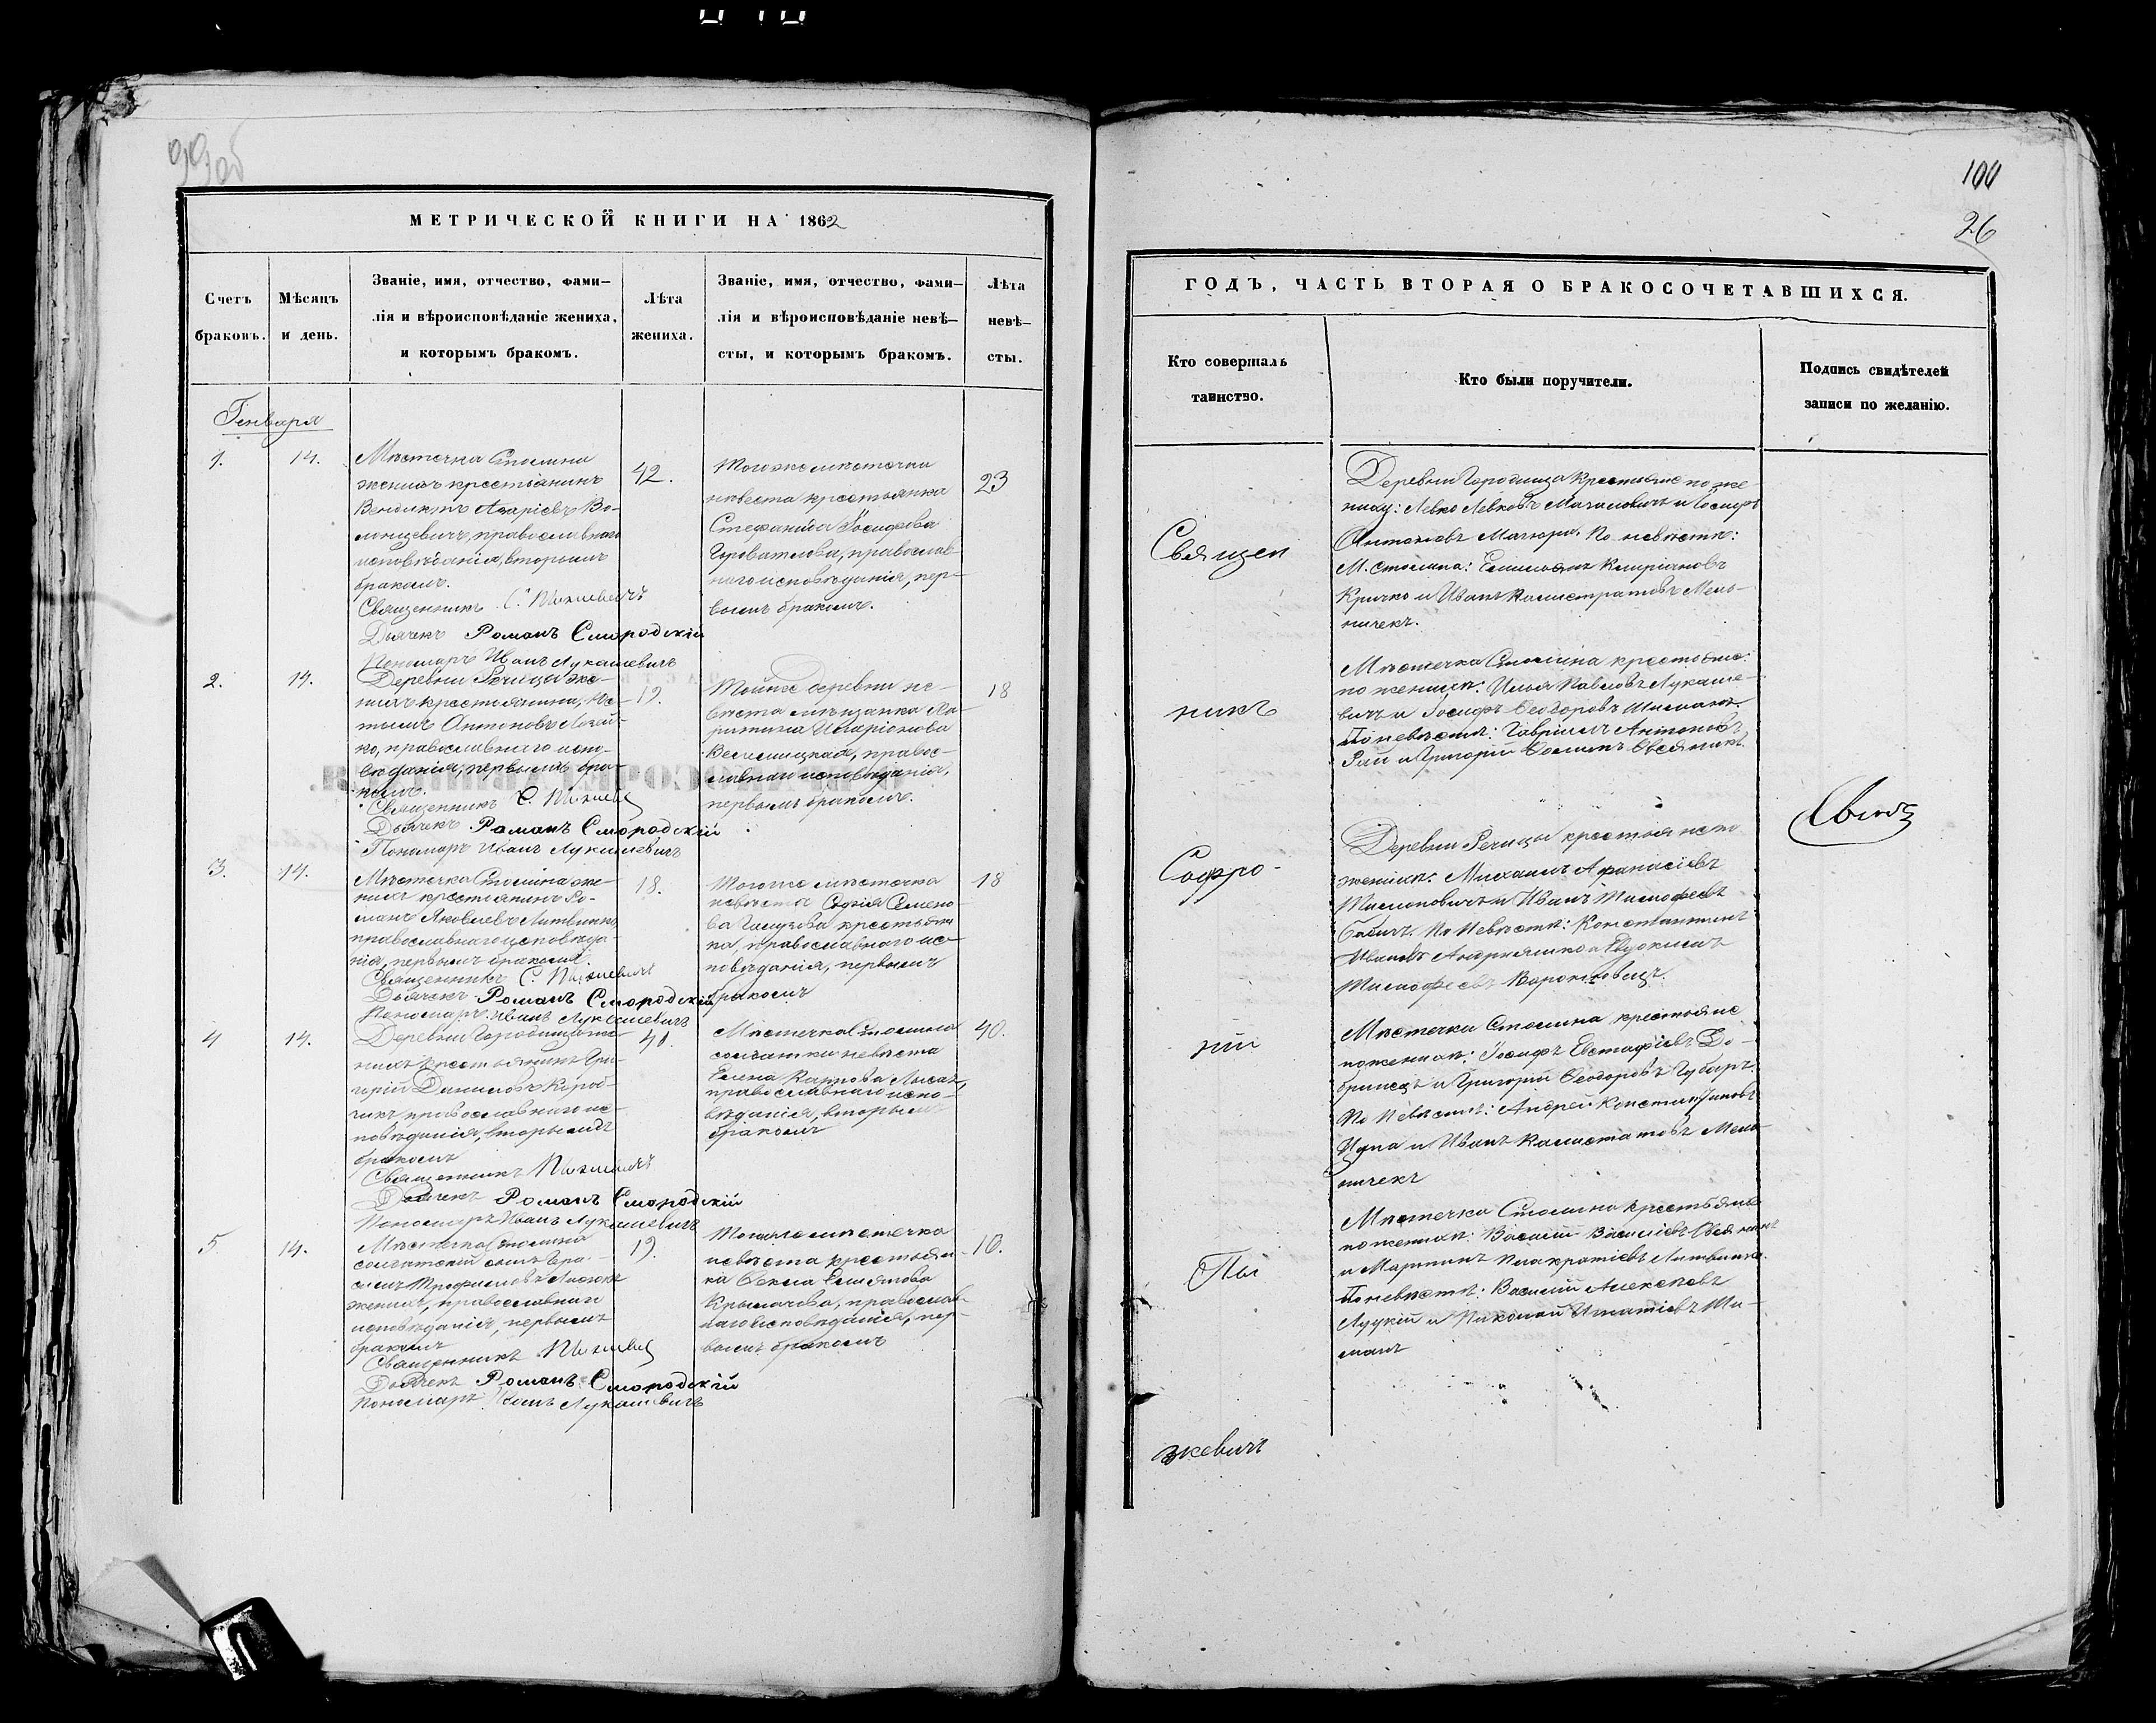 99об
МЕТРИЧЕСКОЙ КНИГИ НА 1862
Счетъ
браковъ.
Мѣсяцъ
и день.
Званіе, имя, отчество, фами-
лія и вѣроисповѣданіе жениха,
и которымъ бракомъ.
Лѣта
жениха.
Званіе, имя, отчество, фами-
лія и вѣроисповѣданіе невѣ-
сты, и которымъ бракомъ.
Лѣта
невѣ-
сты.
Генваря
1.
14.
Мѣстечка Столина
женихъ крестьянинъ
Венедиктъ Азаріевъ Во-
православнаго
исповѣданія, вторымъ
бракомъ.
Священникъ С. Пыжевичъ
Дьячекъ Романъ Смородскій
Пономарь Иванъ Лукашевичъ
42.
Тогоже мѣстечка
невѣста крестьянка
Стефанида Іосифова
православ-
наго исповѣданія, пер-
вымъ бракомъ.
23
2.
14.
Деревни Речицы же-
нихъ крестьянинъ,
Антоновъ
ко, православнаго испо-
вѣданія, первымъ бра-
комъ.
Священникъ С. Пыжевичъ
Дьячекъ Романъ Смородскій
Пономарь Иванъ Лукашевичъ
19.
Тойже деревни не-
вѣста мѣщанка Ха-
ритина Иларіонова
Велемицкая, правос-
лавнаго исповѣданія,
первымъ бракомъ.
18
3.
14.
Мѣстечка Столина же-
нихъ крестьянинъ Ро-
манъ Яковлевъ Литвинко
православнаго исповѣда-
нія, первымъ бракомъ.
Священникъ С. Пыжевичъ
Дьячекъ Романъ Смородскій
Пономарь Иванъ Лукашевичъ
18.
Тогоже мѣстечка
невѣста Софія Семено-
ва крестьян
ка, православнаго ис-
повѣданія, первымъ
бракомъ
18
4
14.
Деревни Городища же-
нихъ крестьянинъ Гри-
горій Даниловъ Короб-
чикъ православнаго ис-
повѣданія, вторымъ
бракомъ
Священникъ Пыжевичъ
Дьячекъ Романъ Смородскій
Пономарь Иванъ Лукашевичъ
41.
Мѣстечка Столина
солдатка невѣста
Елена Карпова
православнаго испо-
вѣданія, вторымъ
бракомъ
40.
5
14.
Мѣстечка Столина
солдатскій сынъ Гра-
Трофимовъ
женихъ, православнаго
исповѣданія, первымъ
бракомъ
Священникъ Пыжевичъ
Дьячекъ Романъ Смородскій
Пономарь Иванъ Лукашевичъ
19.
Тогоже мѣстечка
невѣста крестьян-
ка Фекла
православ-
наго исповѣданія, пер-
вымъ бракомъ
100
26
ГОДЪ, ЧАСТЬ ВТОРАЯ О БРАКОСОЧЕТАВШИХСЯ.
Кто совершалъ
таинство.
Кто были поручители.
Подпись свидѣтелей
записи по желанію.
Священ
никъ
Софро-
ній
Пы
жевичъ
Деревни Городища крестьяне по же
ниху: Левко Левковъ и Іосифъ
Антоновъ Мачюра. По невѣстѣ:
М. Столина: Емельянъ Кипріановъ
Кричко и Иванъ Калистратовъ Мель-
ничекъ.
Мѣстечка Столина крестьяне:
по женихѣ: Илья Павловъ Лукаше-
вичъ и Іосифъ Ѳеодоровъ Шиманъ.
По невѣстѣ: Гавріилъ Антоновъ
и Григорій Овсяникъ.
Деревни Речицы крестьяне по
женихѣ: Михаилъ Афанасіевъ
и Иванъ Тимофеевъ
Бабичъ. По невѣстѣ: Константинъ
Ивановъ Андрияшко и Евдокимъ
Тимофеевъ
Мѣстечка Столина крестьяне
по женихѣ: Іосифъ Евстафіевъ До-
и Григорій Ѳеодоровъ Губаръ.
По невѣстѣ: Андрей Константиновъ
и Иванъ Калистратовъ Мель-
ничекъ
Мѣстечка Столина крестьяне
по женихѣ: Василій Василіевъ Овсяникъ
и Мартинъ Панкратіевъ Литвинко.
По невѣстѣ: Василій Алексѣевъ
Луцкій и Николай Игнатіевъ Ши-
манъ